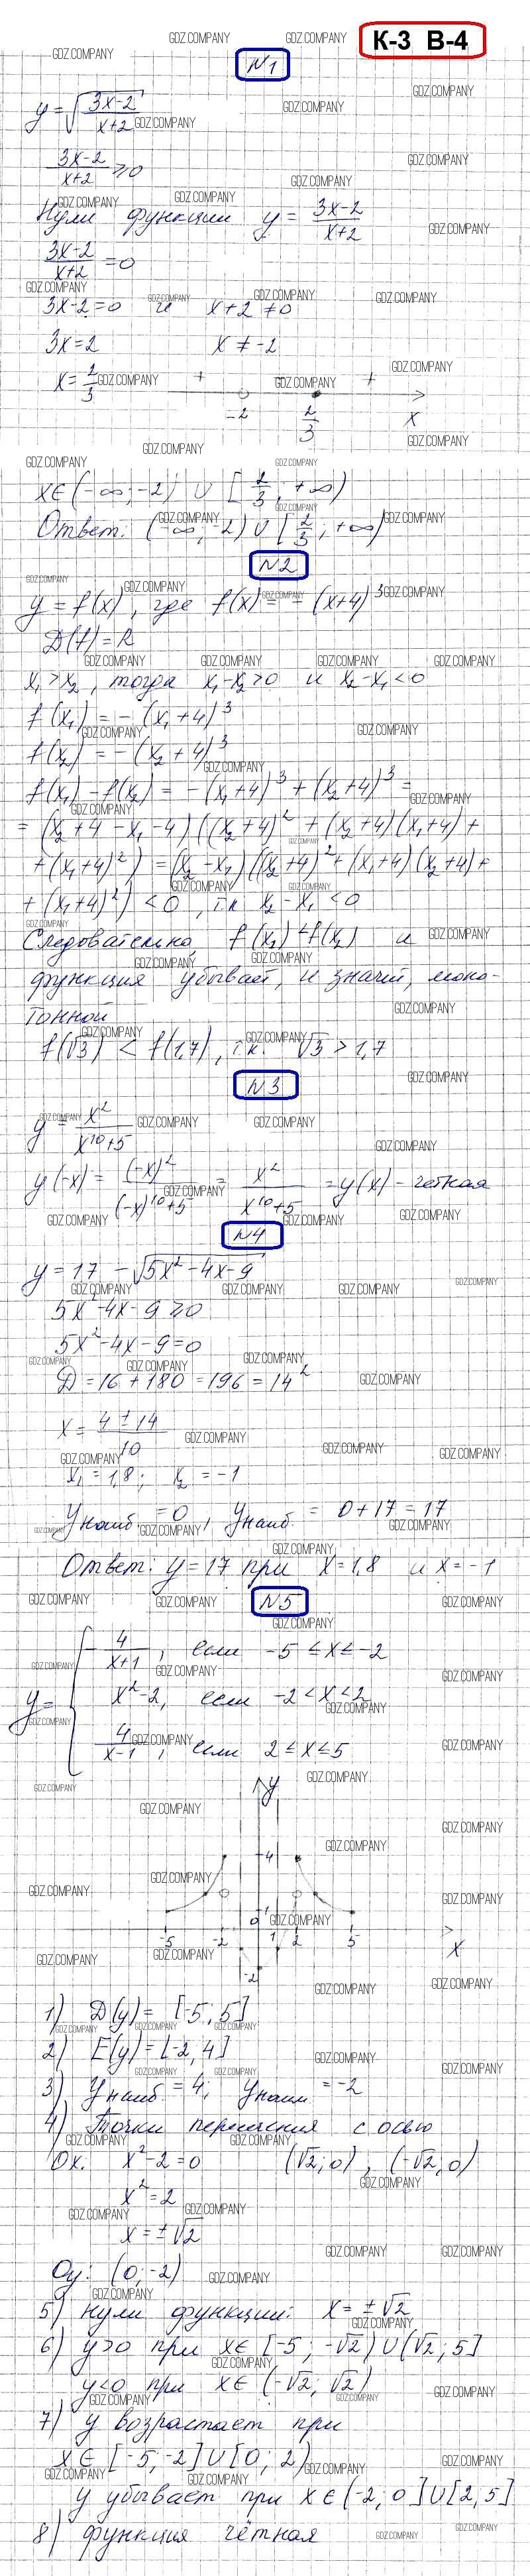 К-3 В-4
№1
y = √(3x-2)/(x+2)
(3x-2)/(x+2) ≥ 0
Нули функции y = (3x-2)/(x+2)
(3x-2)/(x+2) = 0
3x-2=0 и x+2≠0
3x=2 x≠-2
x=2/3
+ +
-2 2/3 x
x∈(-∞;-2) ∪ [2/3; +∞)
Ответ: (-∞;-2)∪[2/3; +∞)
№2
y = f(x), где f(x) = -(x+4)³
D(f)=R
x₁>x₂, тогда x₁-x₂>0 и x₂-x₁<0
f(x₁) = -(x₁+4)³
f(x₂) = -(x₂+4)³
f(x₁)-f(x₂) = -(x₁+4)³+(x₂+4)³=
= (x₂+4-x₁-4)((x₂+4)²+(x₂+4)(x₁+4)+
+(x₁+4)²) = (x₂-x₁)((x₂+4)²+(x₁+4)(x₂+4)+
+(x₁+4)²)<0, т.к x₂-x₁<0
Следовательно, f(x₁)<f(x₂) и
функция убывает, и значит, моно-
тонной
f(√3) < f(1,7), т.к. √3 > 1,7
№3
y = x²/(x¹⁰+5)
y(-x) = (-x)²/((-x)¹⁰+5) = x²/(x¹⁰+5) = y(x) - чётная
№4
y=17 -√(5x²-4x-9)
5x²-4x-9≥0
5x²-4x-9=0
D=16+180=196=14²
x = (4±14)/10
x₁=1,8; x₂=-1
yнаиб.=0, yнаиб. = 0+17=17
Ответ: y=17 при x=1,8 и x=-1
№5
y= { -4/(x+1), если -5≤x≤-2
x²-2, если -2<x<2
4/(x-1), если 2≤x≤5
y
4
1
-5 -2 0 1 2 5 x
-2
1) D(y)= [-5;5]
2) E(y)=[-2,4]
3) yнаиб.=4; yнаим=-2
4) Точки пересечения с осью
Ox: x²-2=0 (√2;0), (-√2,0)
x²=2
x=±√2
Oy: (0;-2)
5) нули функции: x=±√2
6) y>0 при x∈[-5;-√2)∪(√2;5]
y<0 при x∈(-√2;√2)
7) y возрастает при
x∈[-5;-2]∪[0;2)
y убывает при x∈(-2;0]∪[2;5]
8) функция чётная
GDZ.COMPANY